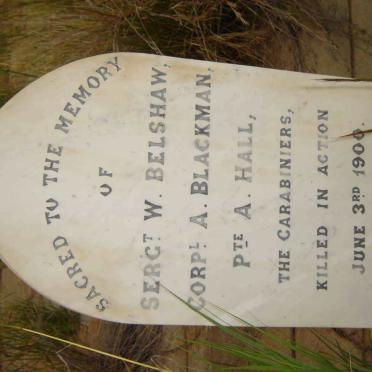 SACRED TO THE MEMORY
OF
SERGT W. BELSHAW,
CORPL A. BLACKMAN,
PTE A. HALL,
THE CARABINIERS,
KILLED IN ACTION
JUNE 3RD 1900.